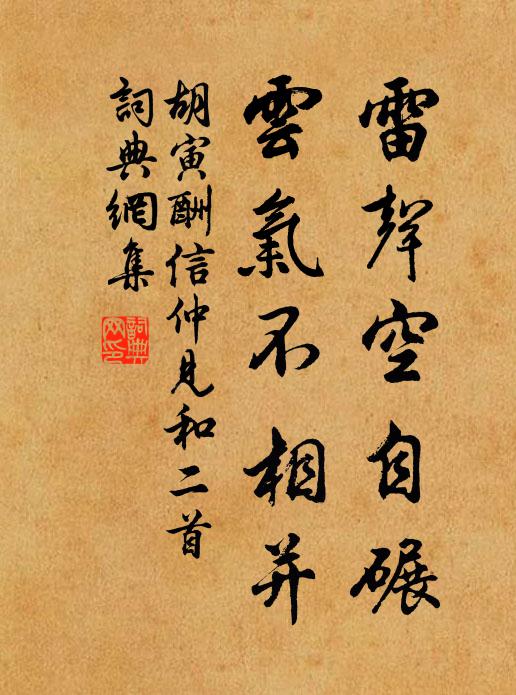 雷聲空自碾
雲氣不相并
胡寅酬信仲見和二首
詞典網集
詞典
网印